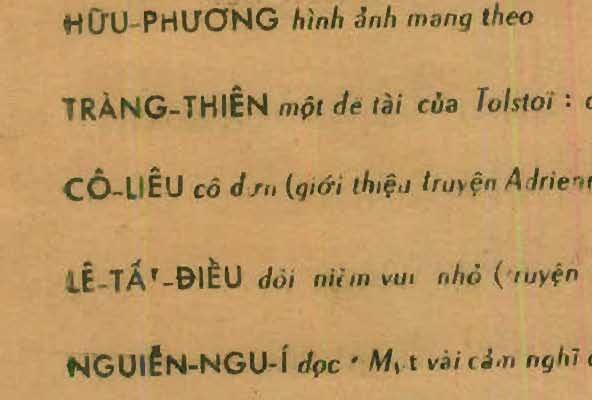 HỮU-PHƯƠNG hình ảnh mang theo
TRÀNG-THIÊN một đề tài của Tolstoï :
CÔ-LIÊU cô đơn (giới thiệu truyện Adrienn
LÊ-TẤT-ĐIỀU đôi niềm vui nhỏ (truyện
NGUIỄN-NGU-Í đọc « Một vài cảm nghĩ